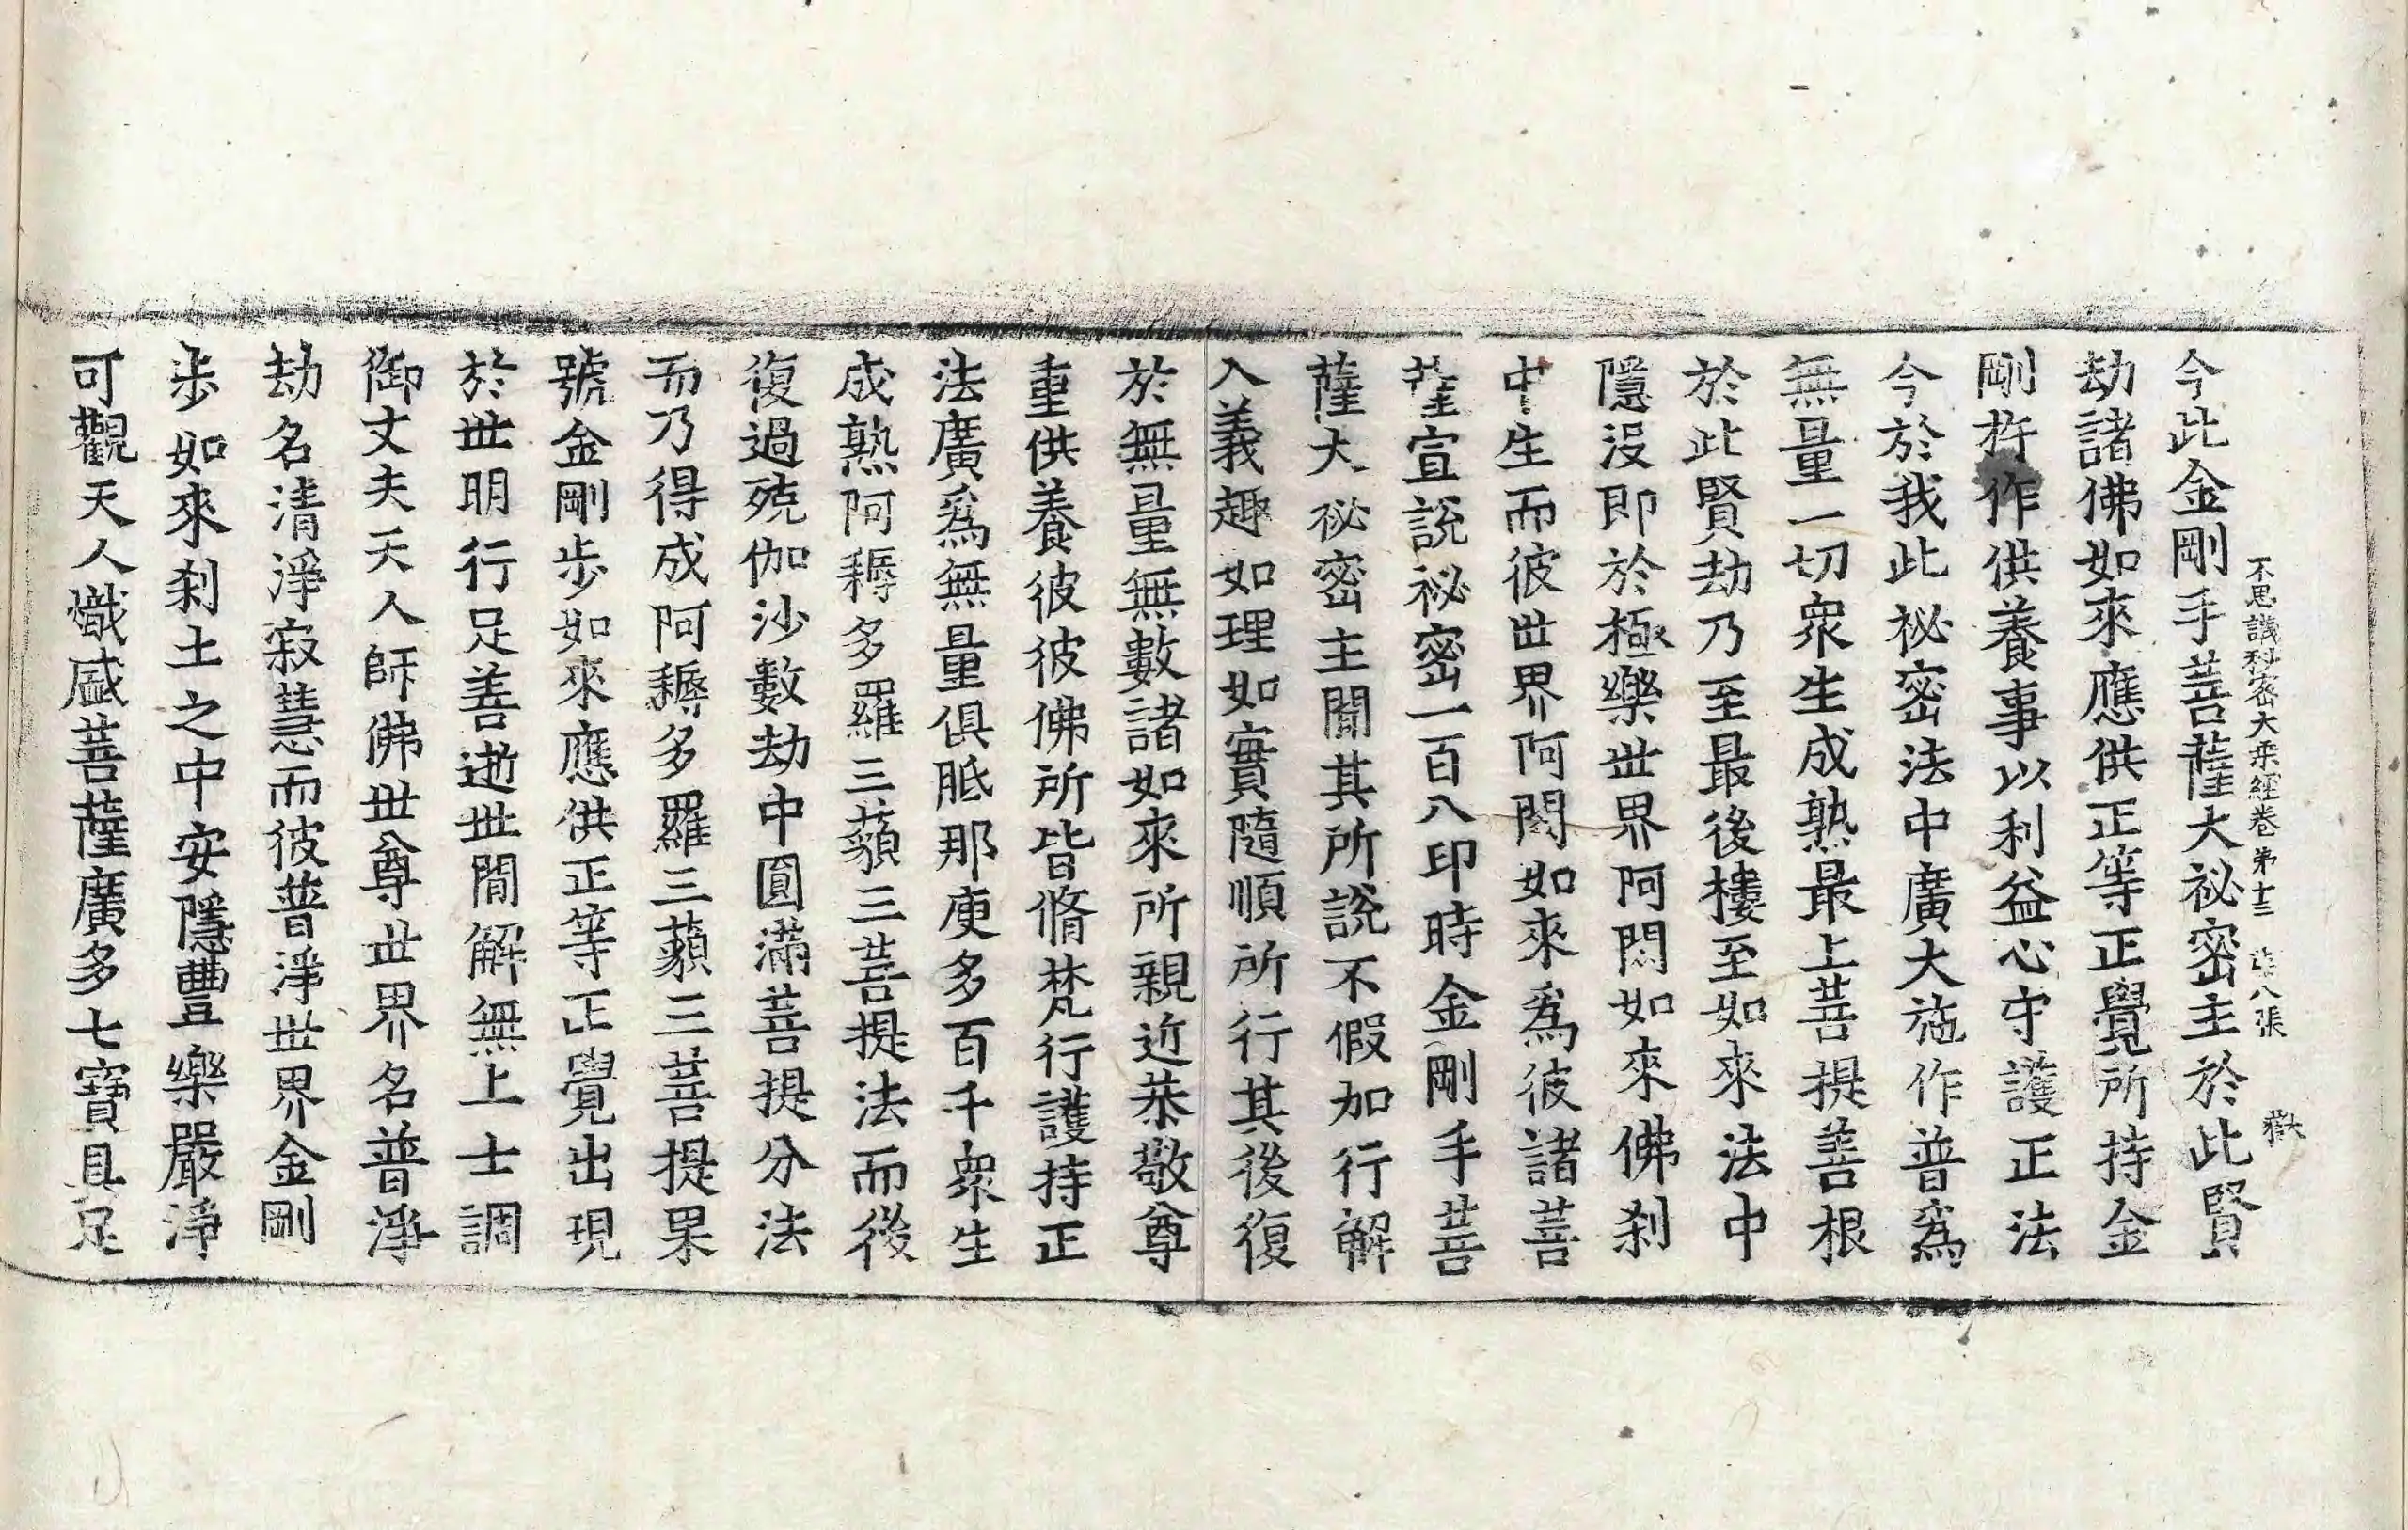 不思議秘密大乘經卷第十三 第八張 嶽
今此金剛手菩薩大祕密主於此賢
劫諸佛如來應供正等正覺所持金
剛杵作供養事以利益心守護正法
今於我此祕密法中廣大施作普爲
無量一切衆生成熟最上菩提善根
於此賢劫乃至最後樓至如來法中
隱沒即於極樂世界阿閦如來佛刹
中生而彼世界阿閦如來爲彼諸菩
薩宣說祕密一百八印時金剛手菩
薩大祕密主聞其所說不假加行解
入義趣如理如實隨順所行其後復
於無量無數諸如來所親近恭敬尊
重供養彼彼佛所皆脩梵行護持正
法廣爲無量俱胝那庾多百千衆生
成熟阿耨多羅三藐三菩提法而後
復過殑伽沙數劫中圓滿菩提分法
而乃得成阿耨多羅三藐三菩提果
號金剛步如來應供正等正覺出現
於世明行足善逝世間解無上士調
御丈夫天人師佛世尊世界名普淨
劫名清淨寂慧而彼普淨世界金剛
步如來刹土之中安隱豐樂嚴淨
可觀天人熾盛菩薩廣多七寶具足